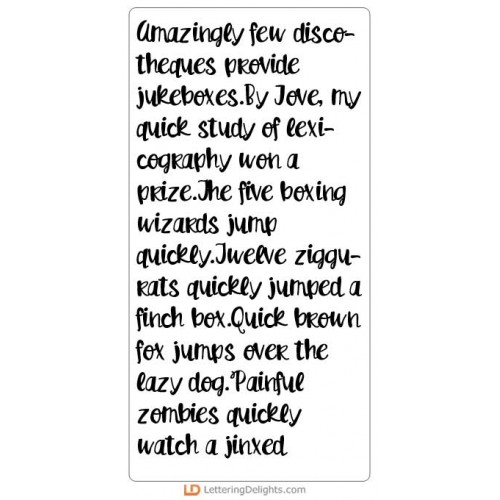 Amazingly few disco-
theques provide
jukeboxes.By Jove, my
quick study of lexi-
cography won a
prize.The five boxing
wizards jump
quickly.Twelve ziggu-
rats quickly jumped a
finch box.Quick brown
fox jumps over the
lazy dog.Painful
zombies quickly
watch a jinxed
LD LetteringDelights.com